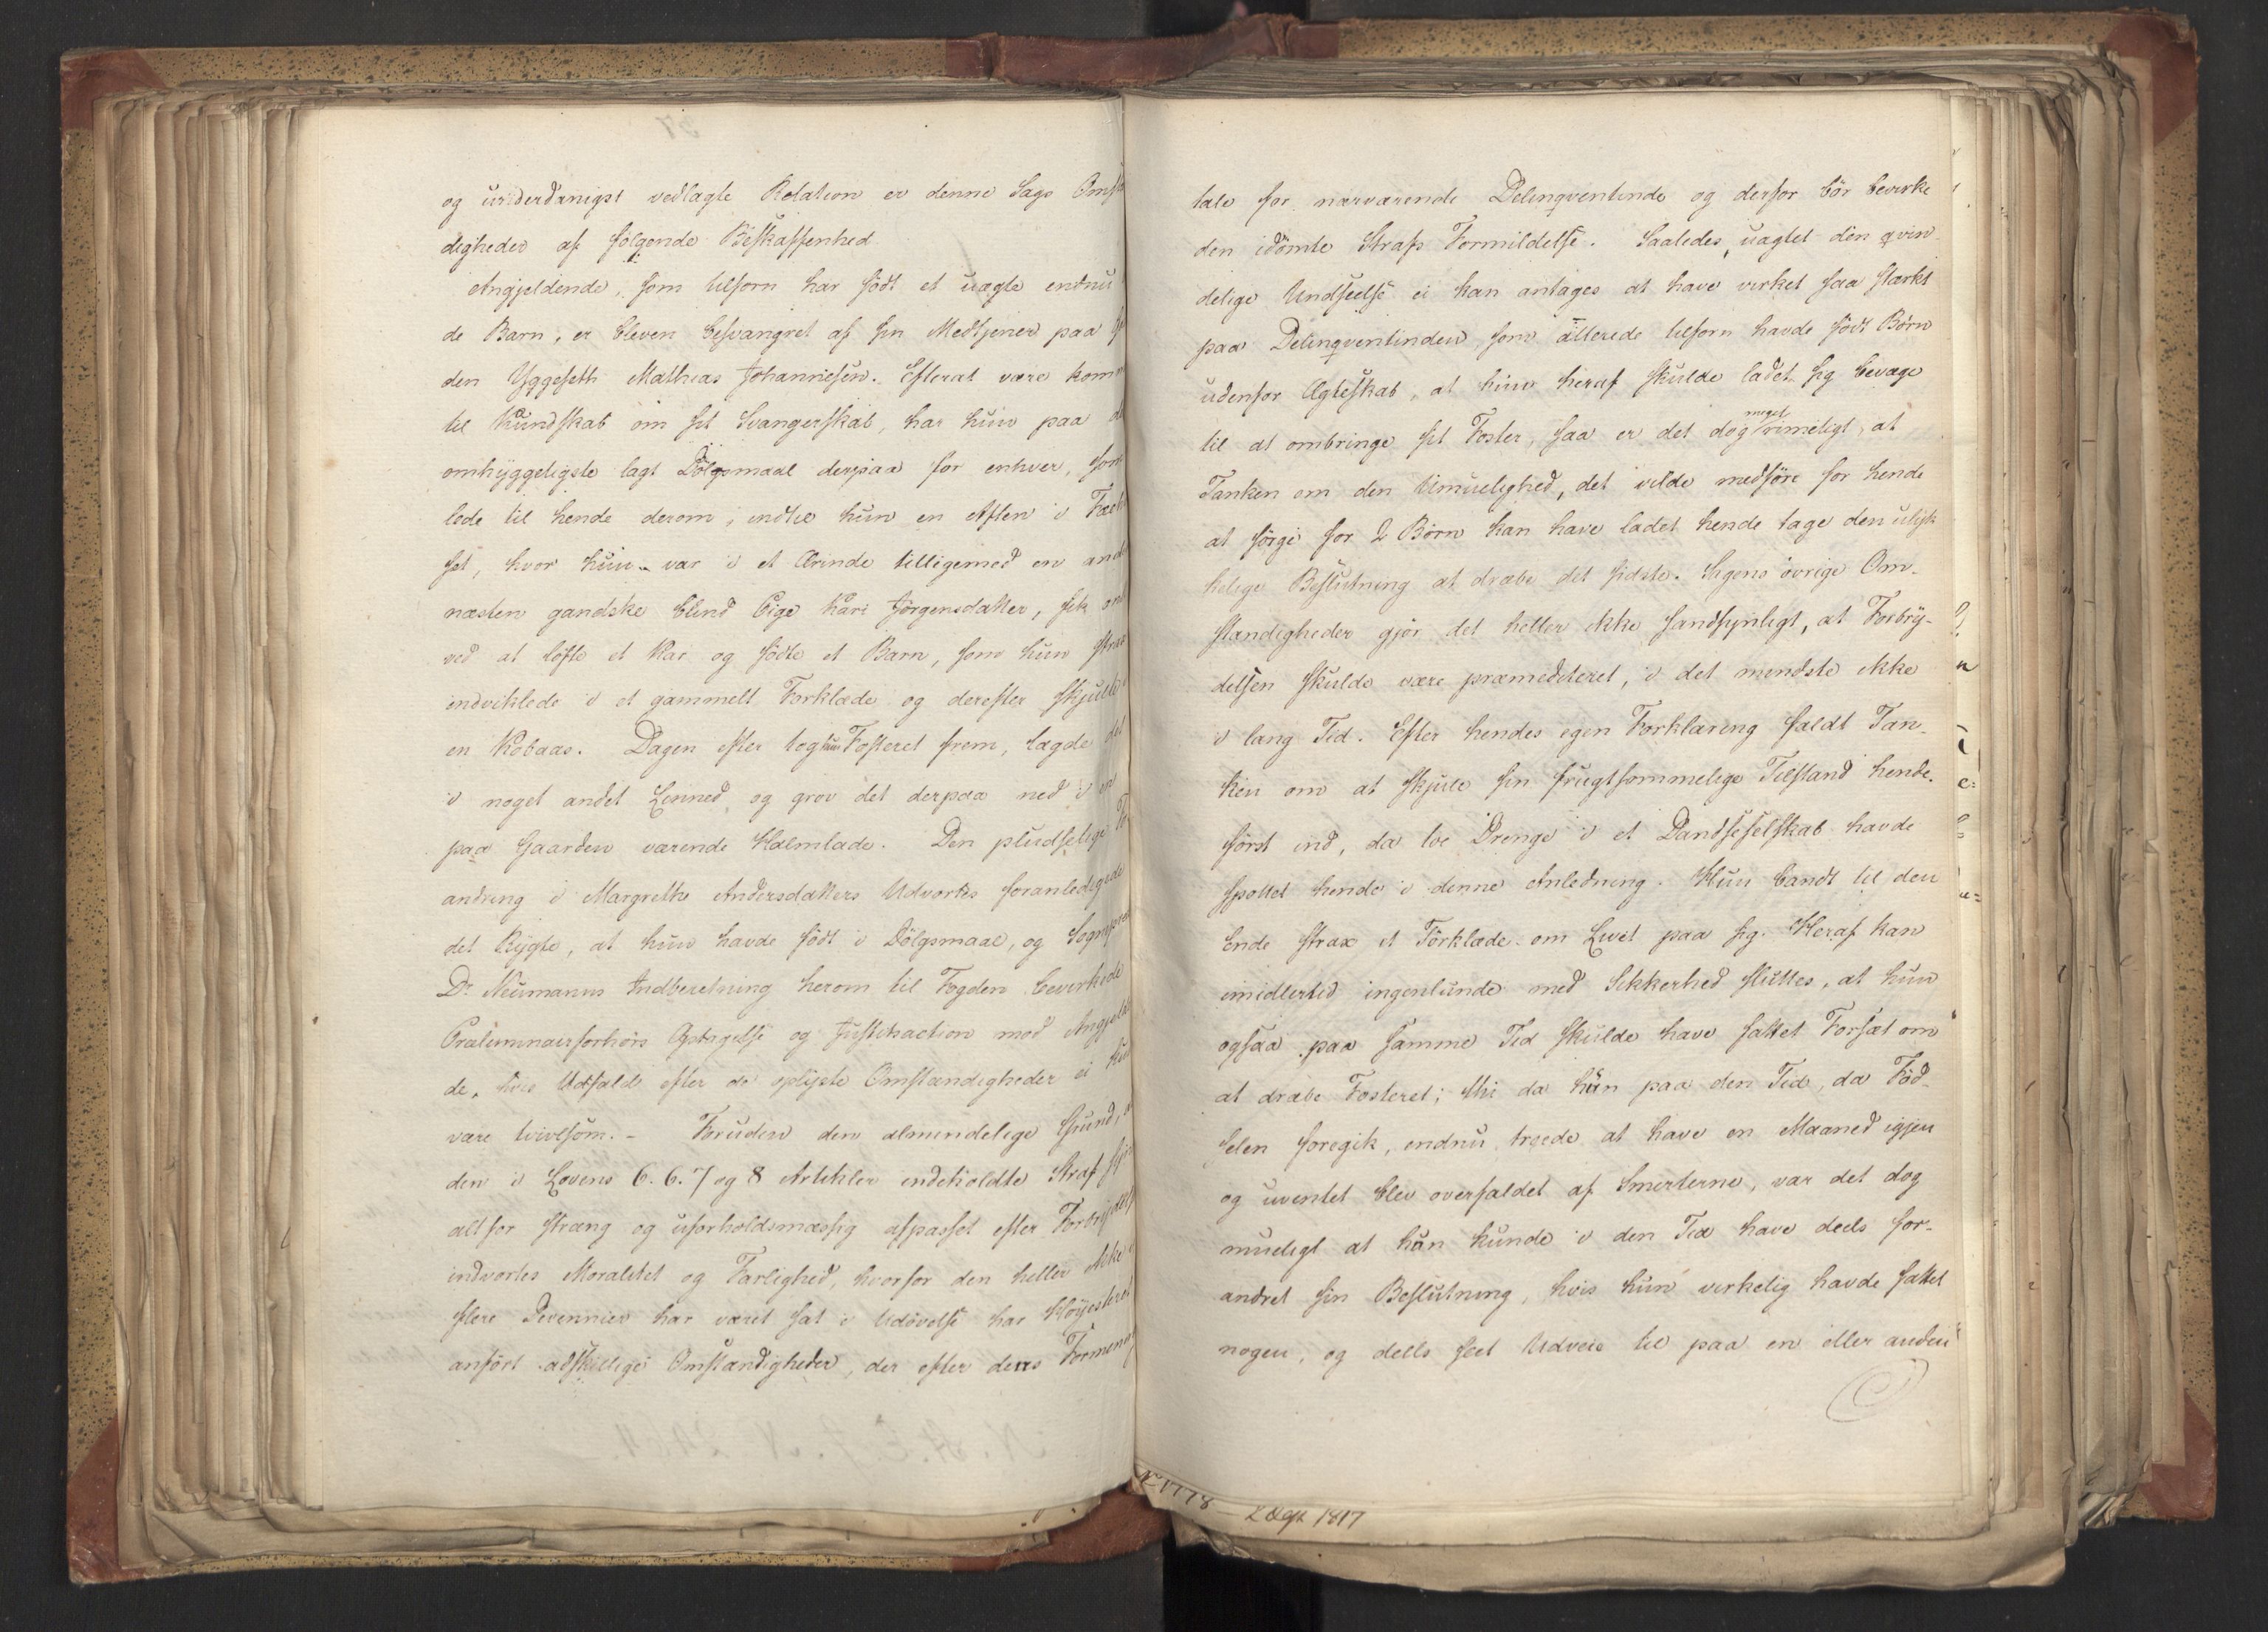 og underdanigst vedlagte Relation er denne Sags Omst
digheder af følgende Beskaffenhed
Angjeldende, som tilforn har født et uægte endnu
de Barn, er bleven besvangret af sin Medtjener paa
den Yggeseth Mathias Johannesen. Efterat være kom
til Kundskab om sit Svangerskab, har hun paa
omhyggeligste lagt Dølgsmaal derpaa for enhver, som
lede til hende derom, indtil hun en Aften i Fæeh
set, hvor hun var i et Ærinde tilligemed en and
næsten gandske blind Pige Kari Jørgensdatter, fik on
ved at løfte et Kar og fødte et Barn, som hun strax
indviklede i et gammelt Forklæde og derefter skjulte
en Kobaas. Dagen efter tog hun Fosteret frem, lagde det
i noget andet Linned, og grov det derpaa ned i en
paa Gaarden værende Halmlade. Den pludselige For
andring i Margrethe Andersdatters Udvortes foranledigede
det Rygte, at hun havde født i Dølgsmaal, og Sognepræst
Dr. Neumanns Indberetning herom til Fogden bevirkede
Præliminairforhørs Optagelse og Justitsaction mod Angjelden
de, hvis Udfald efter de oplyste Omstændigheder ei kun
være tvivlsom. - Foruden den almindelige Grund, at
den i Lovens 6. 6. 7 og 8 Artikler indeholdte Straf
altfor stræng og uforholdsmæssig afpasset efter Forbrydels
indvortes Moralitet og Farlighed, hvorfor den heller ikke i
flere Decennier har været sat i Udøvelse har Høyesteret
anført adskillige Omstændigheder, der efter dens Formening
tale for nærværende Delinqventinde og derfor bør bevirke
den idømte Strafs Formildelse. Saaledes, uagtet den qvin-
delige Undseelse ei kan antages at have virket saa stærkt
paa Delinqventinden, som allerede tilforn havde født Børn
udenfor Ægteskab, at hun heraf skulde ladet sig bevæge
til at ombringe sit Foster, saa er det dog meget rimeligt, at
Tanken om den Umuelighed, det vilde medføre for hende
at sørge for 2 Børn kan have ladet hende tage den ulyk
kelige Beslutning at dræbe det sidste. Sagens øvrige Om-
stændigheder gjør det heller ikke sandsynligt, at Forbry-
delsen skulde være præmediteret, i det mindste ikke
i lang Tid. Efter hendes egen Forklaring faldt Tan-
ken om at skjule sin frugtsommelige Tilstand hende.
først ind, da to Drenge i et Dandseselskab havde
spottet hende i denne Anledning. Hun bandt til den
Ende strax et Forklæde om Livet paa sig. Heraf kan
imidlertid ingenlunde med Sikkerhed sluttes, at hun
ogsaa paa samme Tid skulde have fattet Forsæt om
at dræbe Fosteret; thi da hun paa den Tid, da Fød-
selen foregik, endnu troede at have en Maaned igjen
og uventet blev overfaldet af Smerterne, var det dog
mueligt at hun kunde i den Tid have deels for-
andret sin Beslutning, hvis hun virkelig havde fattet
nogen, og deels seet Udveie til paa en eller anden
No 1778 - 2 Sept 1817